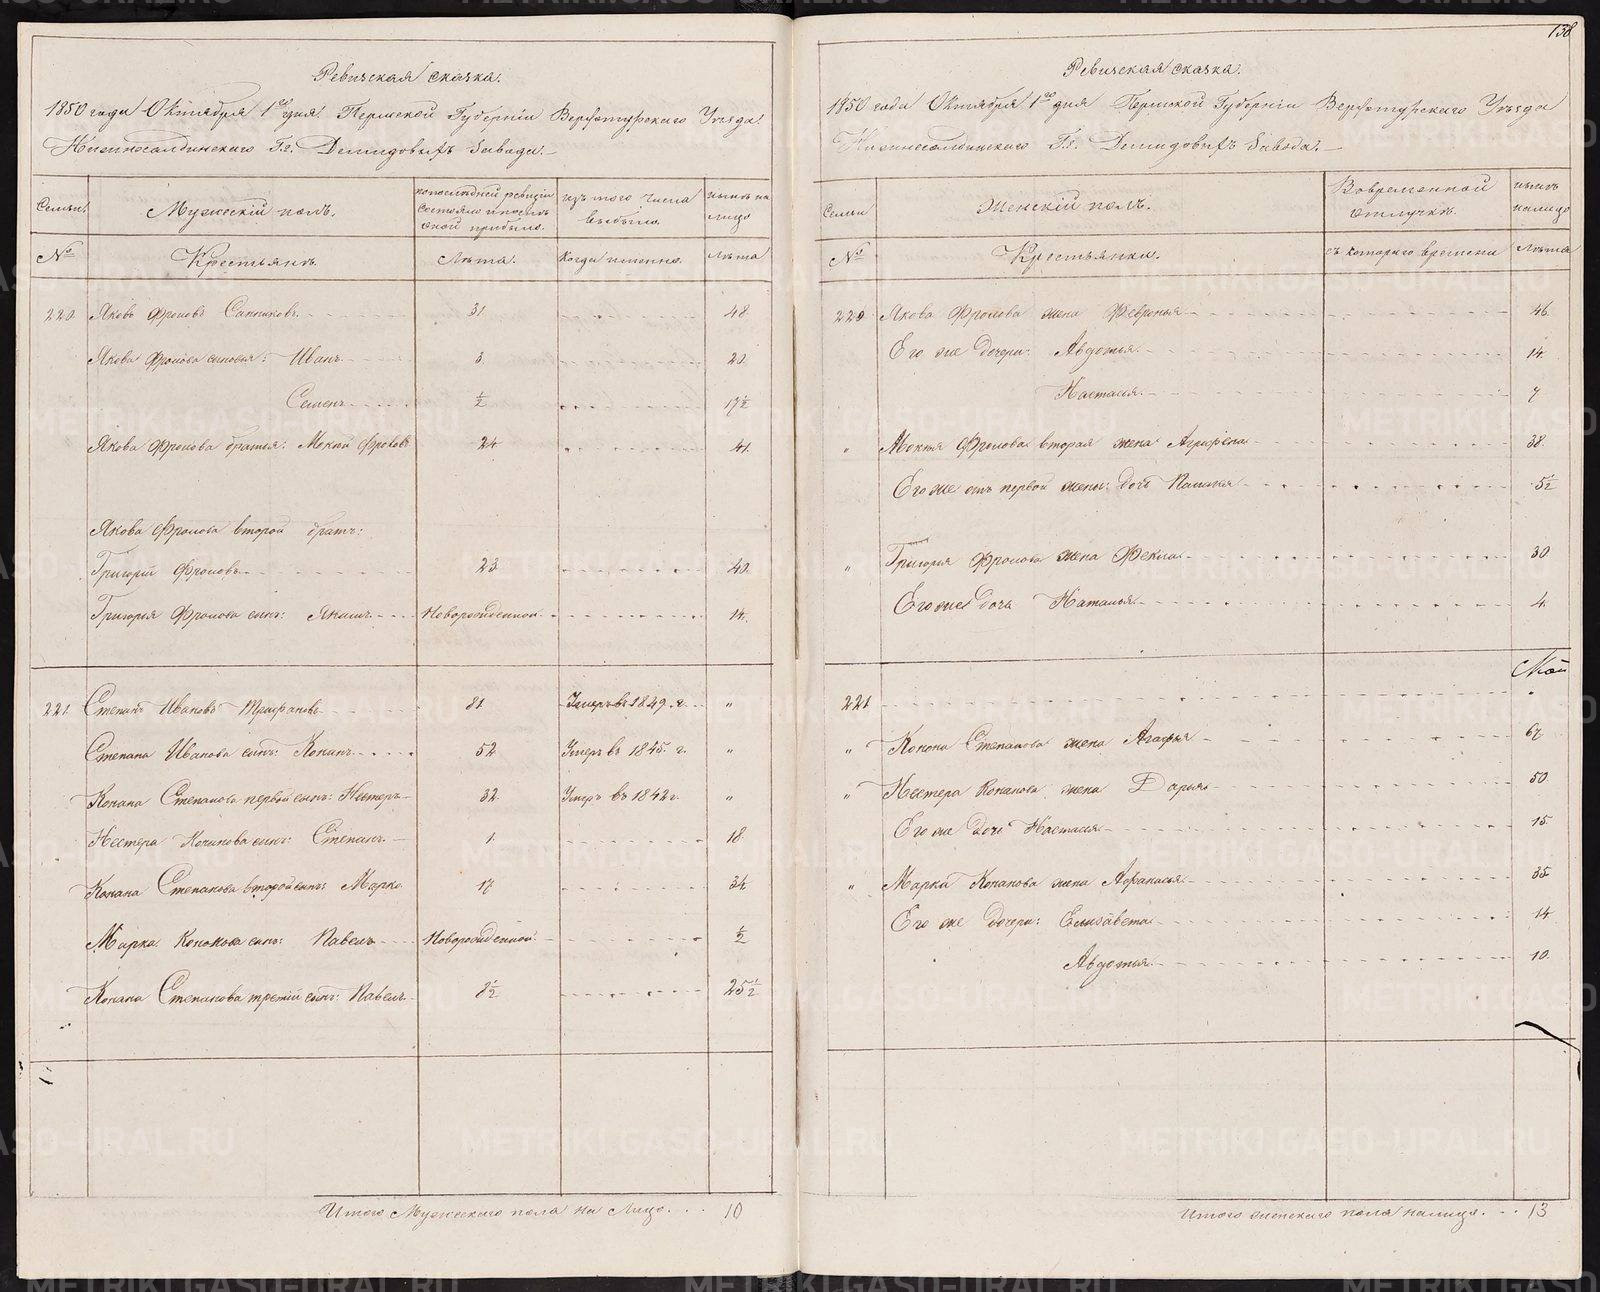 Ревизская сказка.
1850 года Октября 1го дня. Пермской Губерніи Верхотурскаго Уезда.
Нижнесалдинскаго Г.г. Демидовыхъ Завода.
Семьи Мужескій полъ. по последней ревизіи состояло и после оной прибыло. изъ того числа выбыло. ныне на лицо
№ Крестьянъ. Лета. Когда именно. Лета
220. Яковъ Фроловъ Сапниковъ. 31. 48.
Якова Фролова сыновья: Иванъ 3. 20.
Семенъ ½ 17½
Якова Фролова братья: Мокий Фроловъ 24. 41.
Якова Фролова второй братъ:
Григорій Фроловъ 23. 40.
Григорья Фролова сынъ: Якимъ Новорожденной 14.
221. Степанъ Ивановъ Трифановъ 81. Умеръ въ 1849. г. "
Степана Иванова сынъ: Кононъ 52. Умеръ въ 1845. г. "
Конана Степанова первой сынъ: Нестеръ 32. Умеръ въ 1842 г. "
Нестера Кочанова сынъ: Степанъ. 1. 18.
Конана Степанова второй сынъ: Марко 17. 34.
Марка Кононова сынъ: Павелъ Новорожденной ½
Конана Степанова третій сынъ: Павелъ 8½ 25½
Итого Мужескаго пола на Лицо. 10
138
Ревизская сказка.
1850 года Октября 1го дня Пермской Губерніи Верхотурскаго Уезда
Нижнесалдинскаго Г.г. Демидовыхъ Завода.
Семьи Женскій полъ. Во временной отлучке. ныне на лицо
№ Крестьянки. съ котораго времени Лета
220 Якова Фролова жена Февронья 46.
Его же дочери: Авдотья. 14.
Настасья. 7
" Мокия Фролова вторая жена Агрифена 38.
Его же отъ первой жены: дочь Палагея 5½
" Григорья Фролова жена Фекла 30.
Его же дочь Наталья 4.
221 "
" Конона Степанова жена Агафья 67.
" Нестера Конанова жена Дарья 50.
Его же дочь Настасья 15.
" Марка Конанова жена Афанасья 35.
Его же дочери: Елизавета 14
Авдотья. 10.
Итого женскаго пола налицо. 13
METRIKI.GASO-URAL.RU